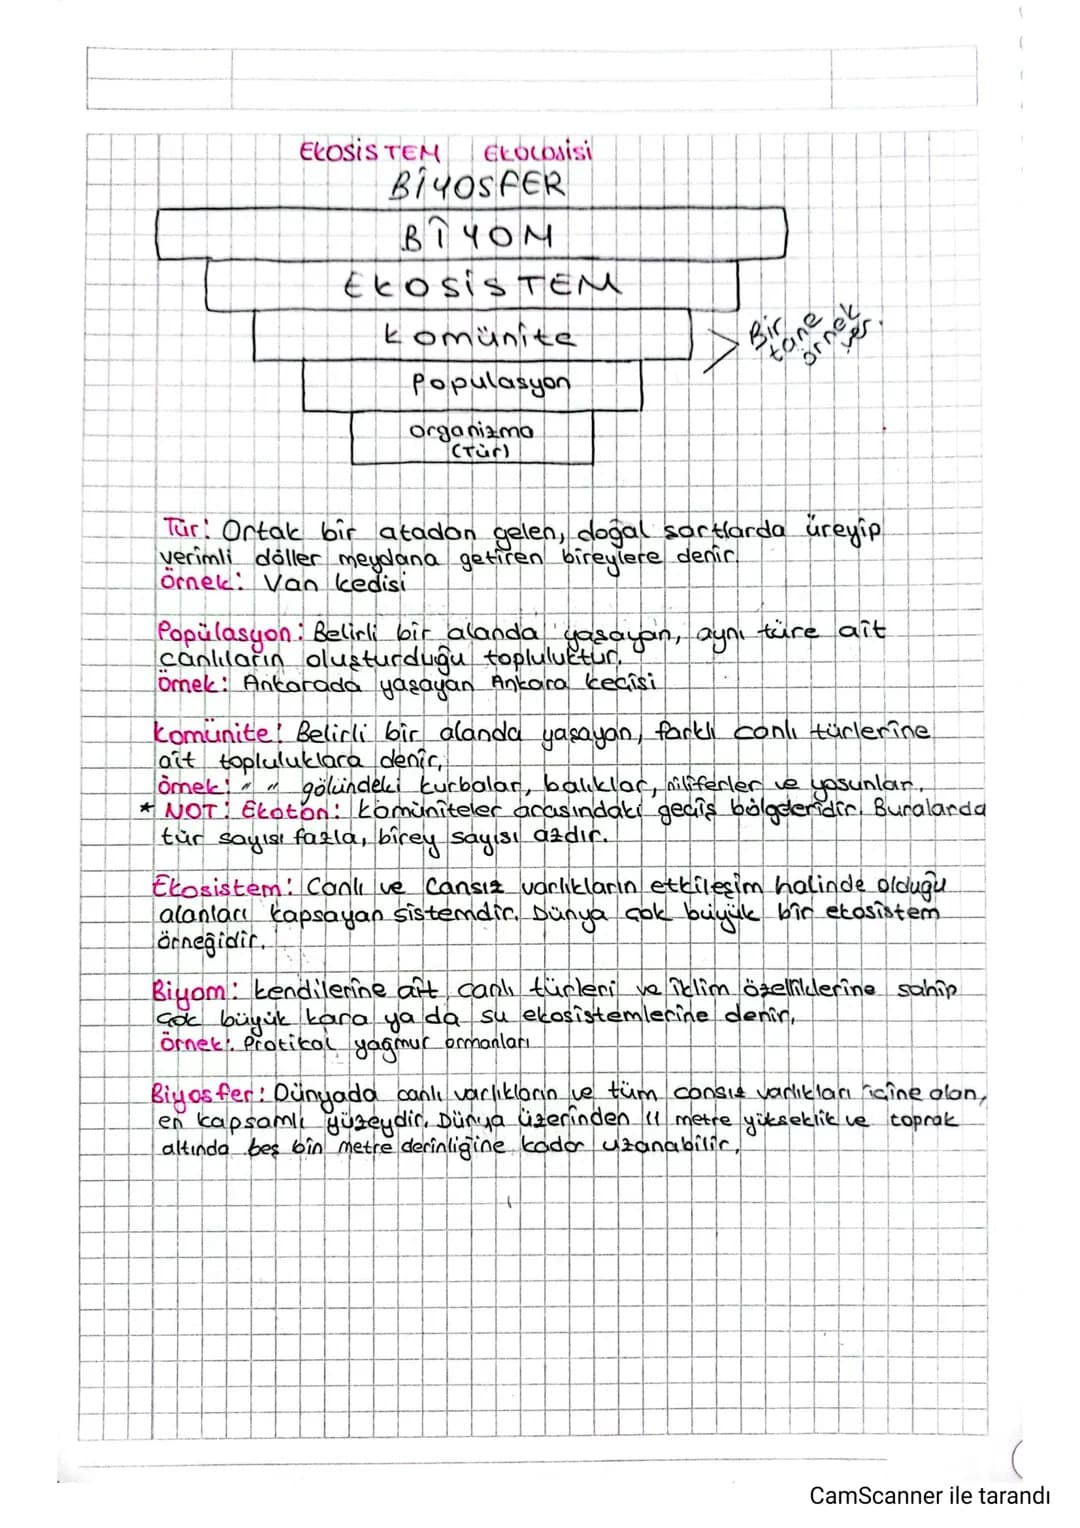 EKOSİSTEM EKOLOJİSİ
BİYOSFER
BİYOM
EKOSİSTEM
Komünite
Populasyon
organizma
(Tür)
Bir tane örnek yer.
Tür: Ortak bir atadan gelen, doğal şartlarda üreyip
verimli döller meydana getiren bireylere denir.
Örnek: Van kedisi
Popülasyon: Belirli bir alanda yaşayan, aynı türe ait
canlıların oluşturduğu topluluktur.
Örnek: Ankarada yaşayan Ankara keçisi
Komünite: Belirli bir alanda yaşayan, farklı canlı türlerine
ait topluluklara denir,
örnek: " " gölündeki kurbalar, balıklar, niliferler ve yosunlar.
* NOT: Ekoton: Komüniteler arasındaki geçiş bölgeleridir. Buralarda
tür sayısı fazla, birey sayısı azdır.
Ekosistem: Canlı ve Cansız varlıkların etkileşim halinde olduğu
alanları kapsayan sistemdir. Dünya çok büyük bir ekosistem
örneğidir.
Biyom: kendilerine ait canlı türleri ve iklim özelliklerine sahip
çok büyük kara ya da su ekosistemlerine denir,
örnek: Protikal yağmur ormanları
Biyosfer: Dünyada canlı varlıkların ve tüm cansız varlıkları içine alan,
en kapsamlı yüzeydir. Dünya üzerinden 11 metre yükseklik ve toprak
altında beş bin metre derinliğine kadar uzanabilir,
CamScanner ile tarandı